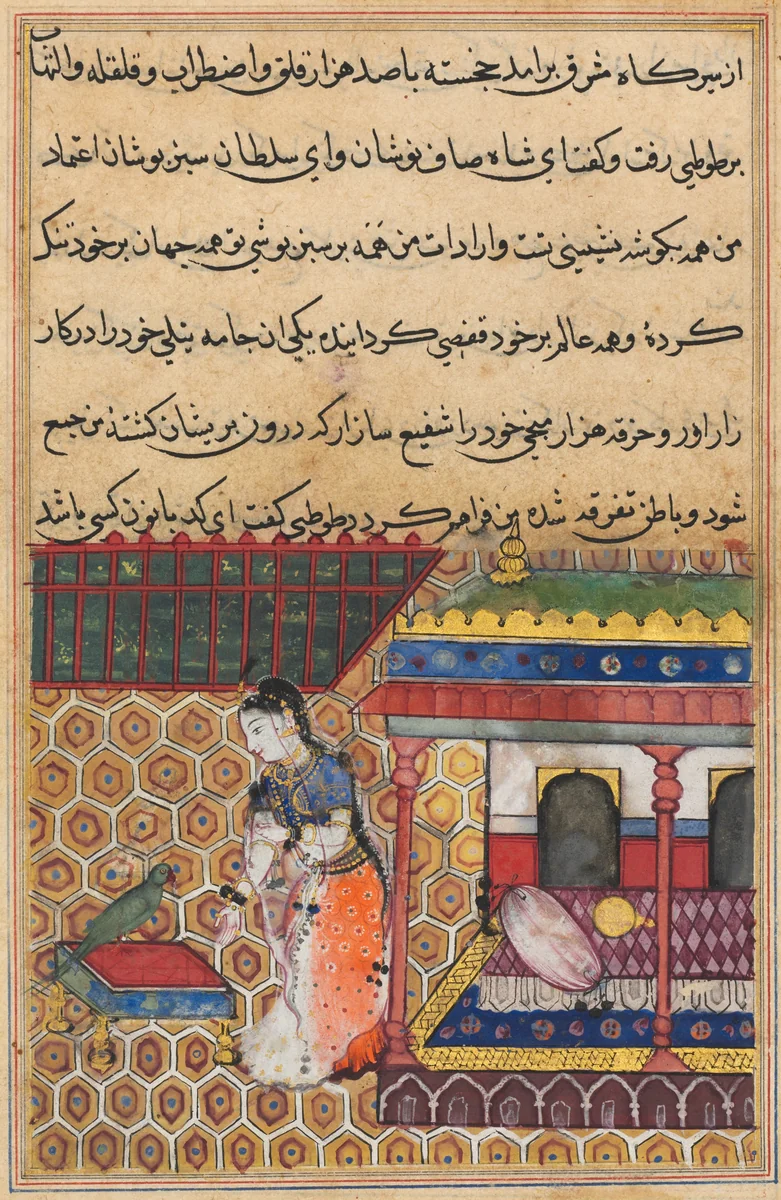 از سیرکاه مشرق برامد خجسته باصد هزار قلق واضطراب وقلقله والتهاب
برطوطی رفت وکفت ای شاه صاف نوشان وای سلطان سبز پوشان اعتماد
من همه بکوشه نشینی تست وارادات من همه برسبز پوشی تو همه جهان برخود تنک
کردهٔ وهمه عالم برخود قفصی کردانیده یکی ان جامه نیلی خود را در کار
زار اور وخرقه هزار میخی خود را شفیع ساز ارکه درون پریشان کشتهٔ من جمع
شود وباطن تفرقه شده من فراهم کردد طوطی کفت ای کد بانون کسی باشد